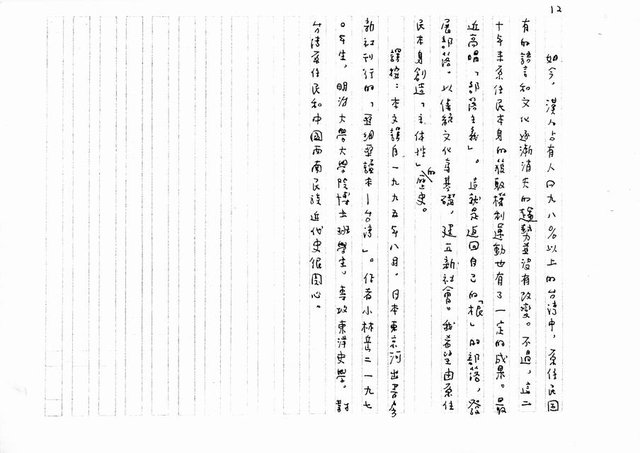 12
如今，漢人占有人口九八％以上的台湾中，原住民固
有的語言和文化逐漸消失的趨勢並没有改変。不過，這二
十年来原住民本身的獲取権利運動也有了一定的成果。最
近高唱「部落主義」。這就是返回自己的「根」的部落，發
展部落。以傳統文化為基礎，建立新社會。我希望由原住
民本身創造「主体性」的歷史。
譯按：本文譯自一九九五年八月，日本東京河出書房
新社刊行的「亞細亞讀本—台湾」。作者小林岳二一九七
〇年生，明治大學大學院博士班學生。專攻東洋史學。對
台湾原住民和中國西南民族近代史很関心。